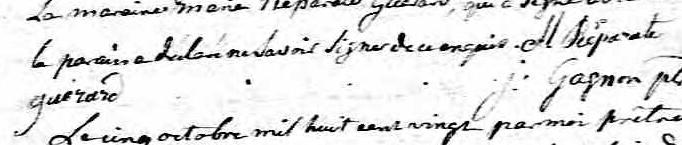 La maraine Marie Réparate Guérard, qui a signé
le parain a déclaré ne savoir signer de ce enquis. M Réparate
guérard
J. Gagnon ptr
Le cinq octobre mil huit cent vingt par moi prêtre